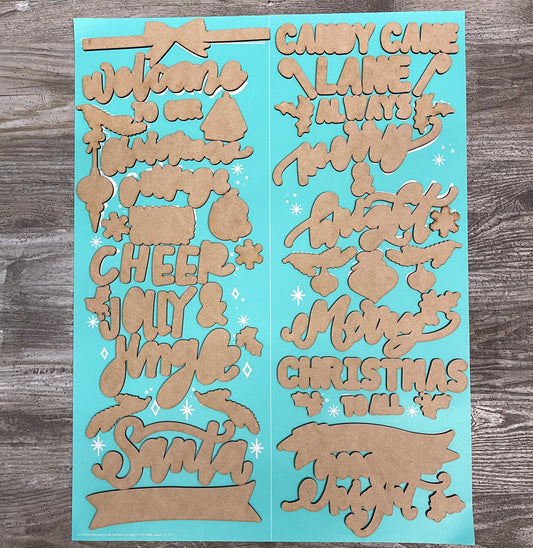 welcome
to our
CHEER
JOLLY &
jingle
Santa
CANDY CANE
LANE
ALWAYS
merry
bright
Merry
CHRISTMAS
to ALL